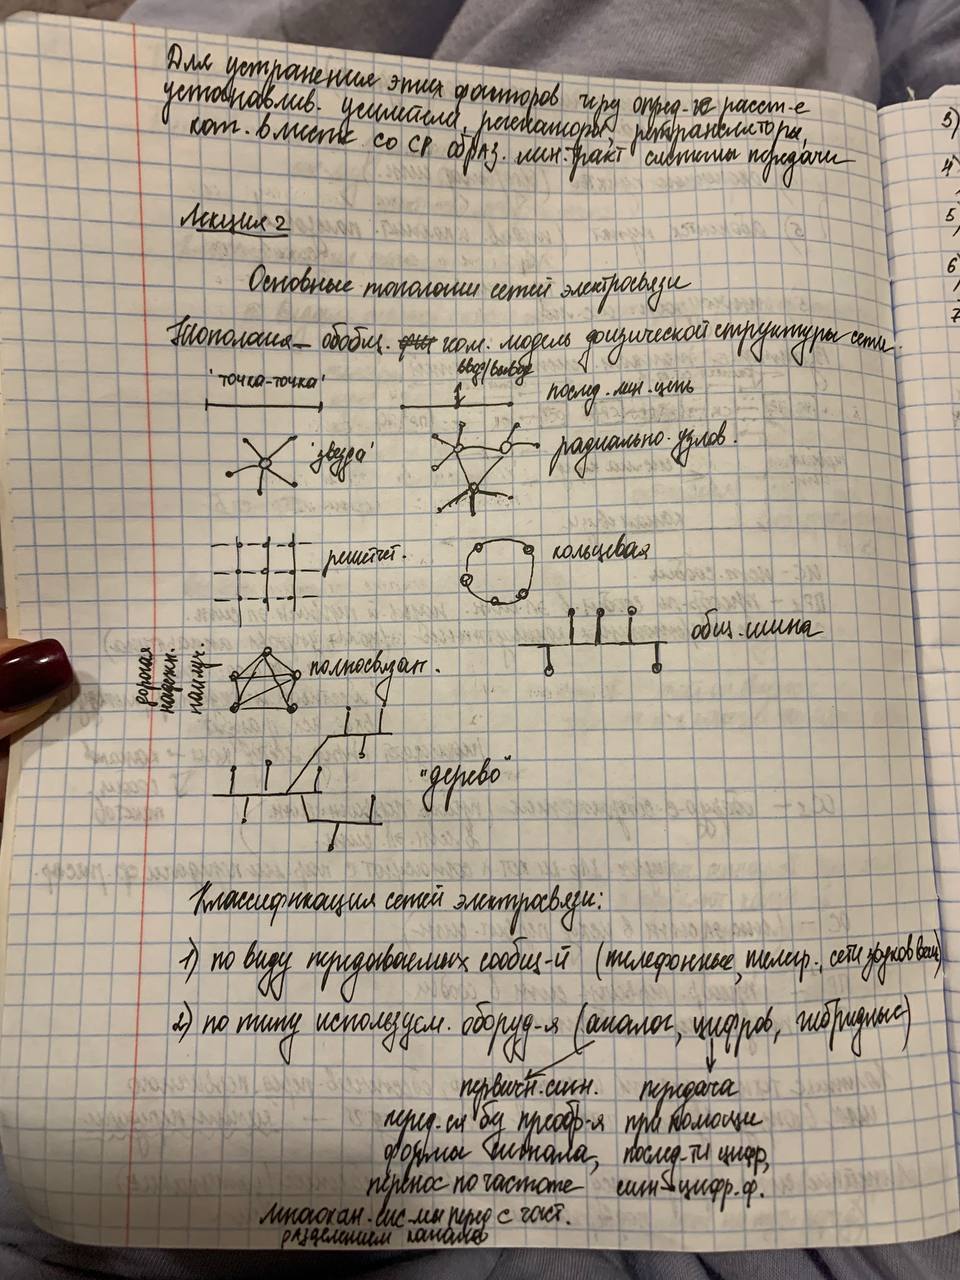 Для устранения этих факторов чрез опред-е расст-е
устанавлив. усилители, регенераторы, ретрансляторы,
кот. вместе со СР образ. лин. тракт системы передачи
Лекция 2
Основные топологии сетей электросвязи
Топология – обобщ. геом. модель физической структуры сети.
'точка-точка'
ввод/вывод
послед. лин. цепь
'звезда'
радиально-узлов.
решетчат.
кольцевая
общ. шина
дорогая
надежн.
наилуч.
полносвязан.
"дерево"
Классификация сетей электросвязи:
1) по виду передаваемых сообщ-й (телефонные, телегр., сети звуков вещ)
2) по типу используем. оборуд-я (аналог, цифров, гибридные)
первичн. сигн. передача
перед-ся без преобр-я при помощи
формы сигнала, послед-ти цифр,
перенос по частоте сигн цифр. ф.
многокан. сис-мы перед с част.
разделением каналов
3)
4
5
6
7